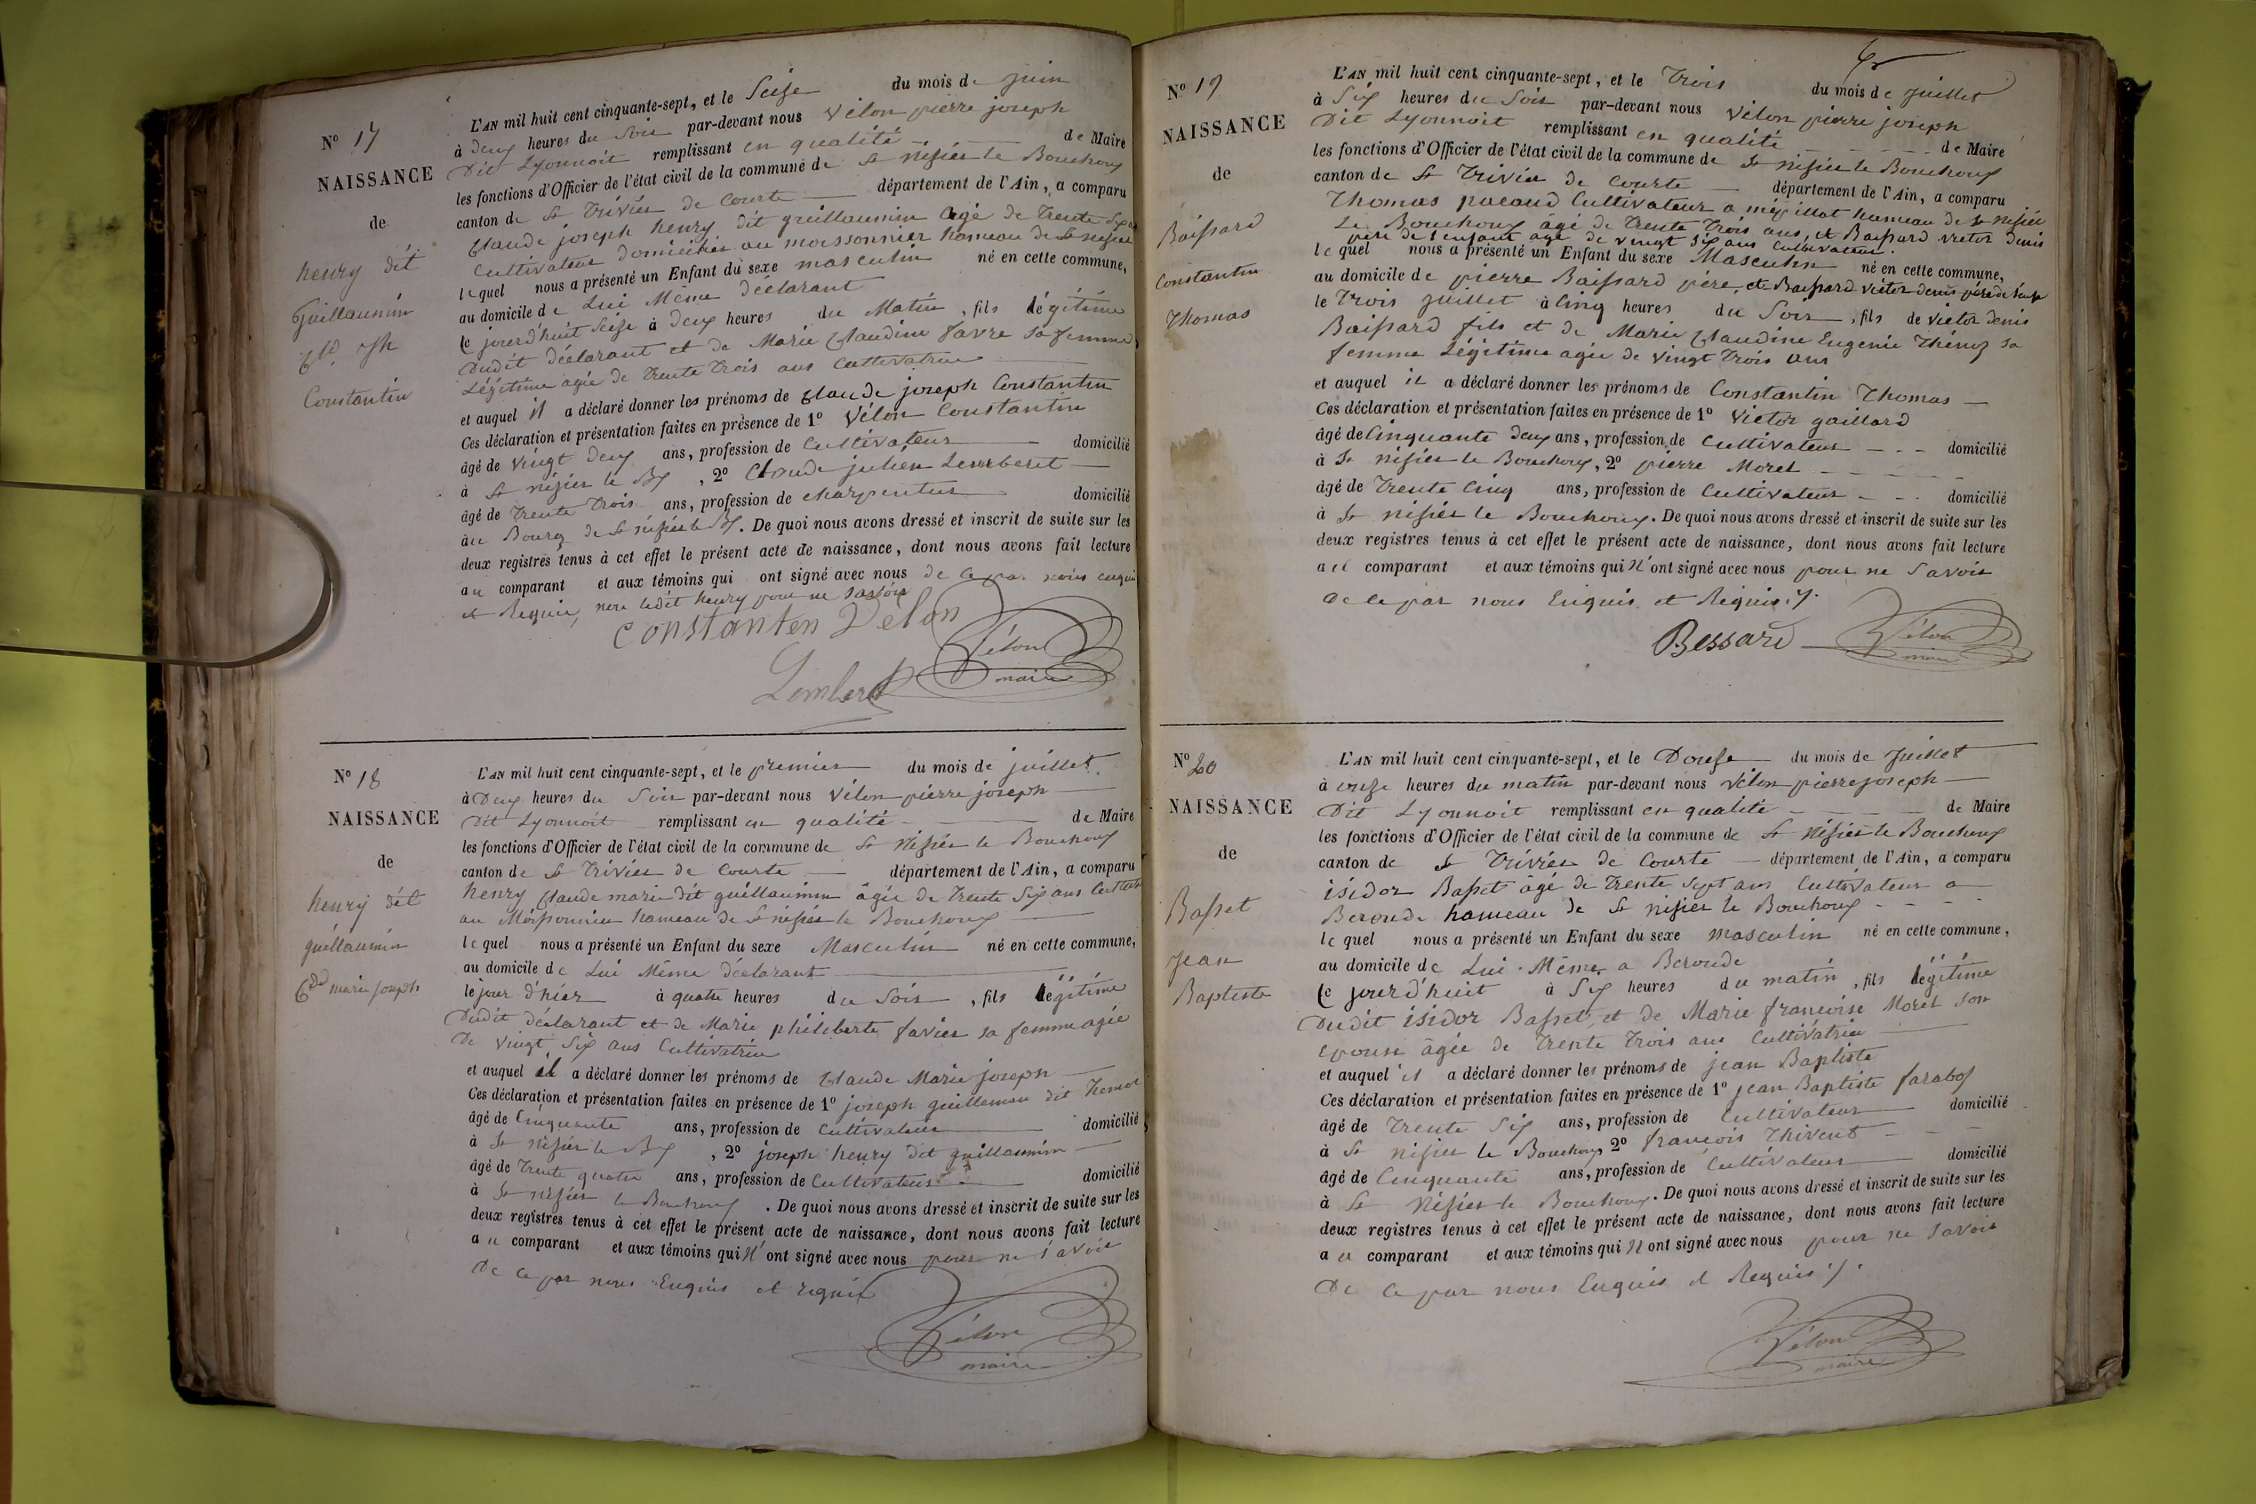 N° 17
NAISSANCE
de
henry dit
Guillaumin
Cld Jh
Constantin
L'AN mil huit cent cinquante-sept, et le Seize du mois de juin
à deux heures du Soir par-devant nous Vélon pierre joseph
Dit Lyonnoit remplissant en qualité de Maire
les fonctions d'Officier de l'état civil de la commune de St Nisier le Bouchoux
canton de St Trivier de Courte département de l'Ain, a comparu
Claude joseph henry dit guillaumin agé de Trente Six
Cultivateur domicilié au moissonnier hameau de St nisier
lequel nous a présenté un Enfant du sexe masculin né en cette commune,
au domicile de Lui Même déclarant
le jourd'huit Seize à deux heures du Matin, fils légitime
Dudit déclarant et de Marie Claudine favre sa femme
Légitime agée de Trente Trois ans Cultivatrice
et auquel il a déclaré donner les prénoms de Claude joseph Constantin
Ces déclaration et présentation faites en présence de 1° Vélon Constantin
âgé de Vingt deux ans, profession de Cultivateur domicilié
à St nisier le Bx, 2° Claude julien Lemberet
âgé de Trente Trois ans, profession de charpentier domicilié
au Bourg de St nisier le Bx. De quoi nous avons dressé et inscrit de suite sur les
deux registres tenus à cet effet le présent acte de naissance, dont nous avons fait lecture
au comparant et aux témoins qui ont signé avec nous de ce par nous enquis
et Requis, non ledit henry pour ne savoir
Constanten Velon
Vélon
maire
Lemberet
N° 18
NAISSANCE
de
henry dit
guillaumin
Cld marie joseph
L'AN mil huit cent cinquante-sept, et le premier du mois de juillet
à Deux heures du Soir par-devant nous Vélon pierre joseph
Dit Lyonnoit remplissant en qualité de Maire
les fonctions d'Officier de l'état civil de la commune de St Nisier le Bouchoux
canton de St Trivier de Courte département de l'Ain, a comparu
henry Claude marie dit guillaumin âgée de Trente Six ans Cultivateur
au Moissonnier hameau de St nisier le Bouchoux
lequel nous a présenté un Enfant du sexe Masculin né en cette commune,
au domicile de Lui Même déclarant
le jour d'hier à quatre heures du Soir, fils légitime
Dudit déclarant et de Marie philiberte favier sa femme agée
De Vingt Six ans Cultivatrice
et auquel il a déclaré donner les prénoms de Claude Marie joseph
Ces déclaration et présentation faites en présence de 1° joseph guillemin dit
âgé de Cinquante ans, profession de Cultivateur domicilié
à St Nisier le Bx, 2° joseph henry dit guillaumin
âgé de Trente quatre ans, profession de Cultivateur domicilié
à St nisier le Bouchoux. De quoi nous avons dressé et inscrit de suite sur les
deux registres tenus à cet effet le présent acte de naissance, dont nous avons fait lecture
au comparant et aux témoins qui N'ont signé avec nous pour ne savoir
De ce par nous Enquis et requis
Vélon
maire
N° 19
NAISSANCE
de
Baissard
Constantin
Thomas
L'AN mil huit cent cinquante-sept, et le Trois du mois de juillet
à Six heures du Soir par-devant nous Vélon pierre joseph
Dit Lyonnoit remplissant en qualité de Maire
les fonctions d'Officier de l'état civil de la commune de St nisier le Bouchoux
canton de St Trivier de Courte département de l'Ain, a comparu
Thomas pacaud Cultivateur a mépillat hameau de St Nisier
Le Bouchoux âgé de Trente Trois ans, et Baissard victor denis
père de l'enfant agé de vingt six ans cultivateur
lequel nous a présenté un Enfant du sexe Masculin né en cette commune,
au domicile de pierre Baissard père, et Baissard victor denis père de l'enft
le Trois juillet à Cinq heures du Soir, fils de victor denis
Baissard fils et de Marie Claudine Eugenie Thénoz sa
femme Légitime agée de Vingt Trois ans
et auquel il a déclaré donner les prénoms de Constantin Thomas
Ces déclaration et présentation faites en présence de 1° Victor gaillard
âgé de Cinquante Deux ans, profession de Cultivateur domicilié
à St nisier le Bouchoux, 2° pierre Morel
âgé de Trente Cinq ans, profession de Cultivateur domicilié
à St nisier le Bouchoux. De quoi nous avons dressé et inscrit de suite sur les
deux registres tenus à cet effet le présent acte de naissance, dont nous avons fait lecture
au comparant et aux témoins qui N'ont signé avec nous pour ne Savoir
de ce par nous Enquis et Requis
Bessard
Vélon
maire
N° 20
NAISSANCE
de
Basset
Jean
Baptiste
L'AN mil huit cent cinquante-sept, et le Douze du mois de Juillet
à onze heures du matin par-devant nous Vélon pierre joseph
Dit Lyonnoit remplissant en qualité de Maire
les fonctions d'Officier de l'état civil de la commune de St Nisier le Bouchoux
canton de St Trivier de Courte département de l'Ain, a comparu
isidor Basset âgé de Trente Sept ans Cultivateur a
Beronde hameau de St nisier le Bouchoux
lequel nous a présenté un Enfant du sexe masculin né en cette commune,
au domicile de Lui Même a Beronde
le jourd'huit à Six heures du matin, fils légitime
Dudit isidor Basset, et de Marie françoise Morel son
epouse âgée de Trente Trois ans Cultivatrice
et auquel il a déclaré donner les prénoms de jean Baptiste
Ces déclaration et présentation faites en présence de 1° jean Baptiste farabof
âgé de Trente Six ans, profession de Cultivateur domicilié
à St nisier le Bouchoux 2° françois Thivent
âgé de Cinquante ans, profession de Cultivateur domicilié
à St Nisier le Bouchoux. De quoi nous avons dressé et inscrit de suite sur les
deux registres tenus à cet effet le présent acte de naissance, dont nous avons fait lecture
au comparant et aux témoins qui N'ont signé avec nous pour ne Savoir
De ce par nous Enquis et Requis
Vélon
maire